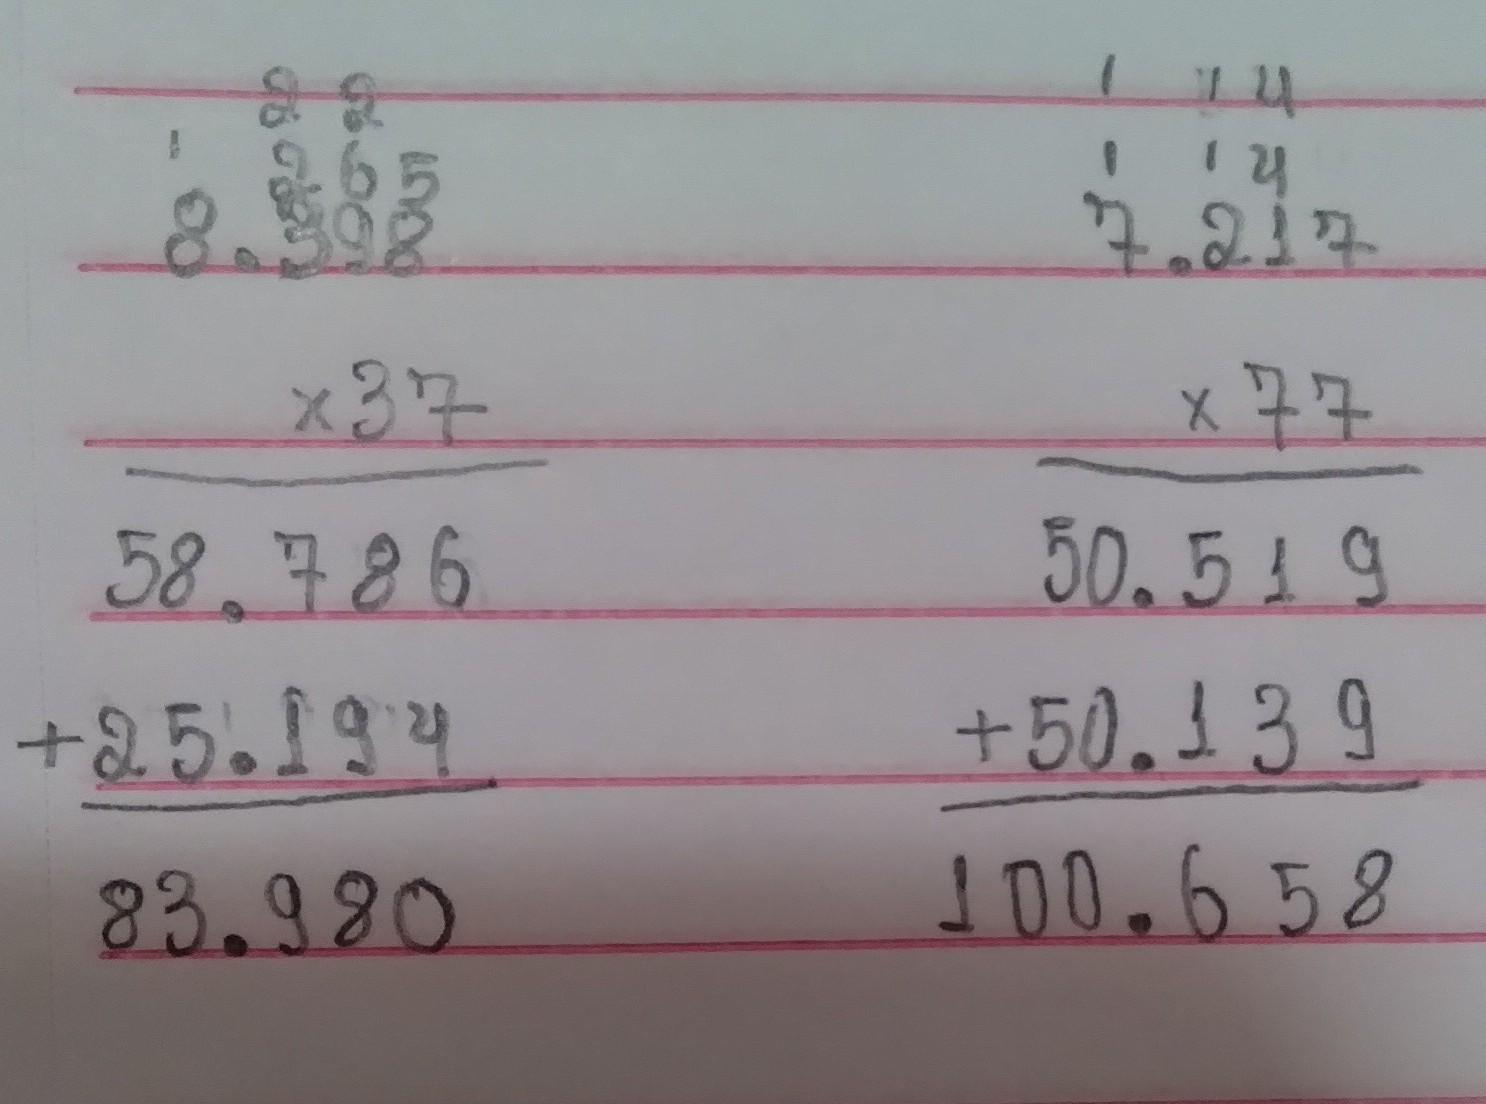 2 2
1 2 6 5
8.398
x37
58.786
+25.194
83.980
1 1 4
1 1 4
7.217
x77
50.519
+50.139
100.658